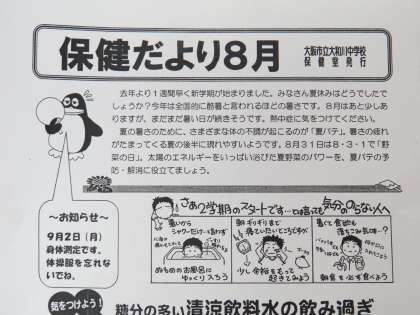 保健だより8月
大阪市立大和川中学校
保健室発行
去年より1週間早く新学期が始まりました。みなさん夏休みはどうでしたで
しょうか?今年は全国的に酷暑と言われるほどの暑さです。8月はあと少しあ
りますが、まだまだ暑い日が続きそうです。熱中症に気をつけてください。
夏の暑さのために、さまざまな体の不調が起こるのが「夏バテ」。暑さの疲れ
がたまってくる夏の後半に現れやすいようです。8月31日は8・3・1で「野
菜の日」。太陽のエネルギーをいっぱい浴びた夏野菜のパワーを、夏バテの予
防・解消に役立てましょう。
~お知らせ~
9月2日(月)
身体測定です。
体操服を忘れな
いでね。
さあ2学期のスタートです…とは言っても気分ののらない人へ
暑いから
シャワーだけ…と言わず
ぬるめのお風呂に
ゆっくり入ろう
朝ギリギリまで
寝ていたいところですが
少し余裕をもって
起きてみよう
暑くて食欲も
落ちこみ気味…?
朝食を必ず食べよう
気をつけよう!
糖分の多い清涼飲料水の飲み過ぎ